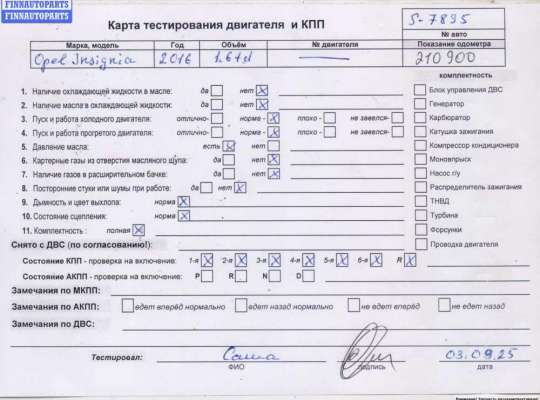 FINNAUTOPARTS
FINNAUTOPARTS
Карта тестирования двигателя и КПП
S-7895
№ авто
Марка, модель Год Объём № двигателя Показание одометра
Opel Insignia 2016 1.6td — 210900
комплектность
1. Наличие охлаждающей жидкости в масле: да нет X Блок управления ДВС
2. Наличие масла в охлаждающей жидкости: да нет X Генератор
3. Пуск и работа холодного двигателя: отлично- норма- X плохо- не завелся- Карбюратор
4. Пуск и работа прогретого двигателя: отлично- норма- X плохо- не завелся- Катушка зажигания
5. Давление масла: есть X нет Компрессор кондиционера
6. Картерные газы из отверстия масляного щупа: да нет X Моновпрыск
7. Наличие газов в расширительном бачке: да нет X Насос г/у
8. Посторонние стуки или шумы при работе: да нет X Распределитель зажигания
9. Дымность и цвет выхлопа: норма X ТНВД
10. Состояние сцепления: норма X Турбина
11. Комплектность : полная X Форсунки
Снято с ДВС (по согласованию!): Проводка двигателя
Состояние КПП - проверка на включение: 1-я X 2-я X 3-я X 4-я X 5-я X 6-я X R X
Состояние АКПП - проверка на включение: P R N D
Замечания по МКПП:
Замечания по АКПП: едет вперёд нормально едет назад нормально не едет вперёд не едет назад
Замечания по ДВС:
Тестировал: Саша 03.09.25
ФИО подпись дата